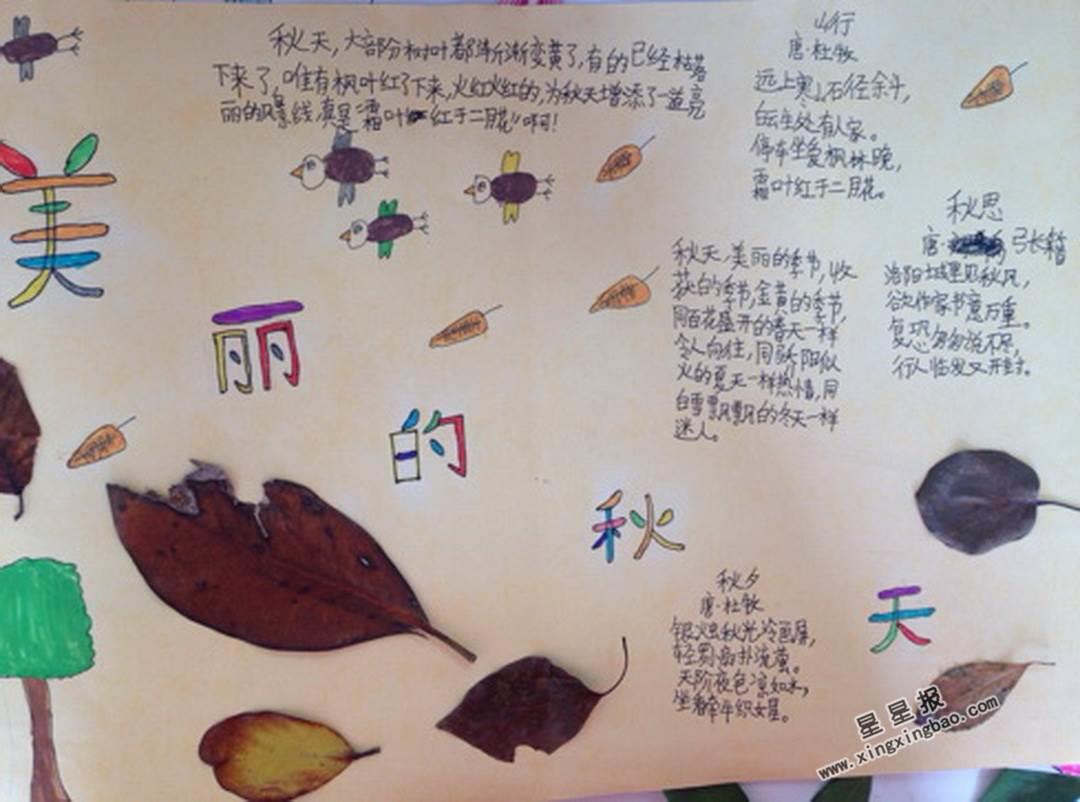 秋天,大部分树叶都渐渐变黄了,有的已经枯落
下来了,唯有枫叶红了下来,火红火红的,为秋天增添了一道亮
丽的风景线,真是“霜叶红于二月花”啊!
山行
唐·杜牧
远上寒山石径余斗,
白云生处有人家。
停车坐爱枫林晚,
霜叶红于二月花。
秋思
唐· 张籍
洛阳城里见秋风,
欲作家书意万重。
复恐匆匆说不尽,
行人临发又开封。
秋天,美丽的季节,收
获的季节,金黄的季节,
同百花盛开的春天一样
令人向往,同骄阳似
火的夏天一样热情,同
白雪飘飘的冬天一样
迷人。
美丽的秋天
秋夕
唐·杜牧
银烛秋光冷画屏,
轻罗小扇扑流萤。
天阶夜色凉如水,
坐看牵牛织女星。
星星报
www.xingxingbao.com